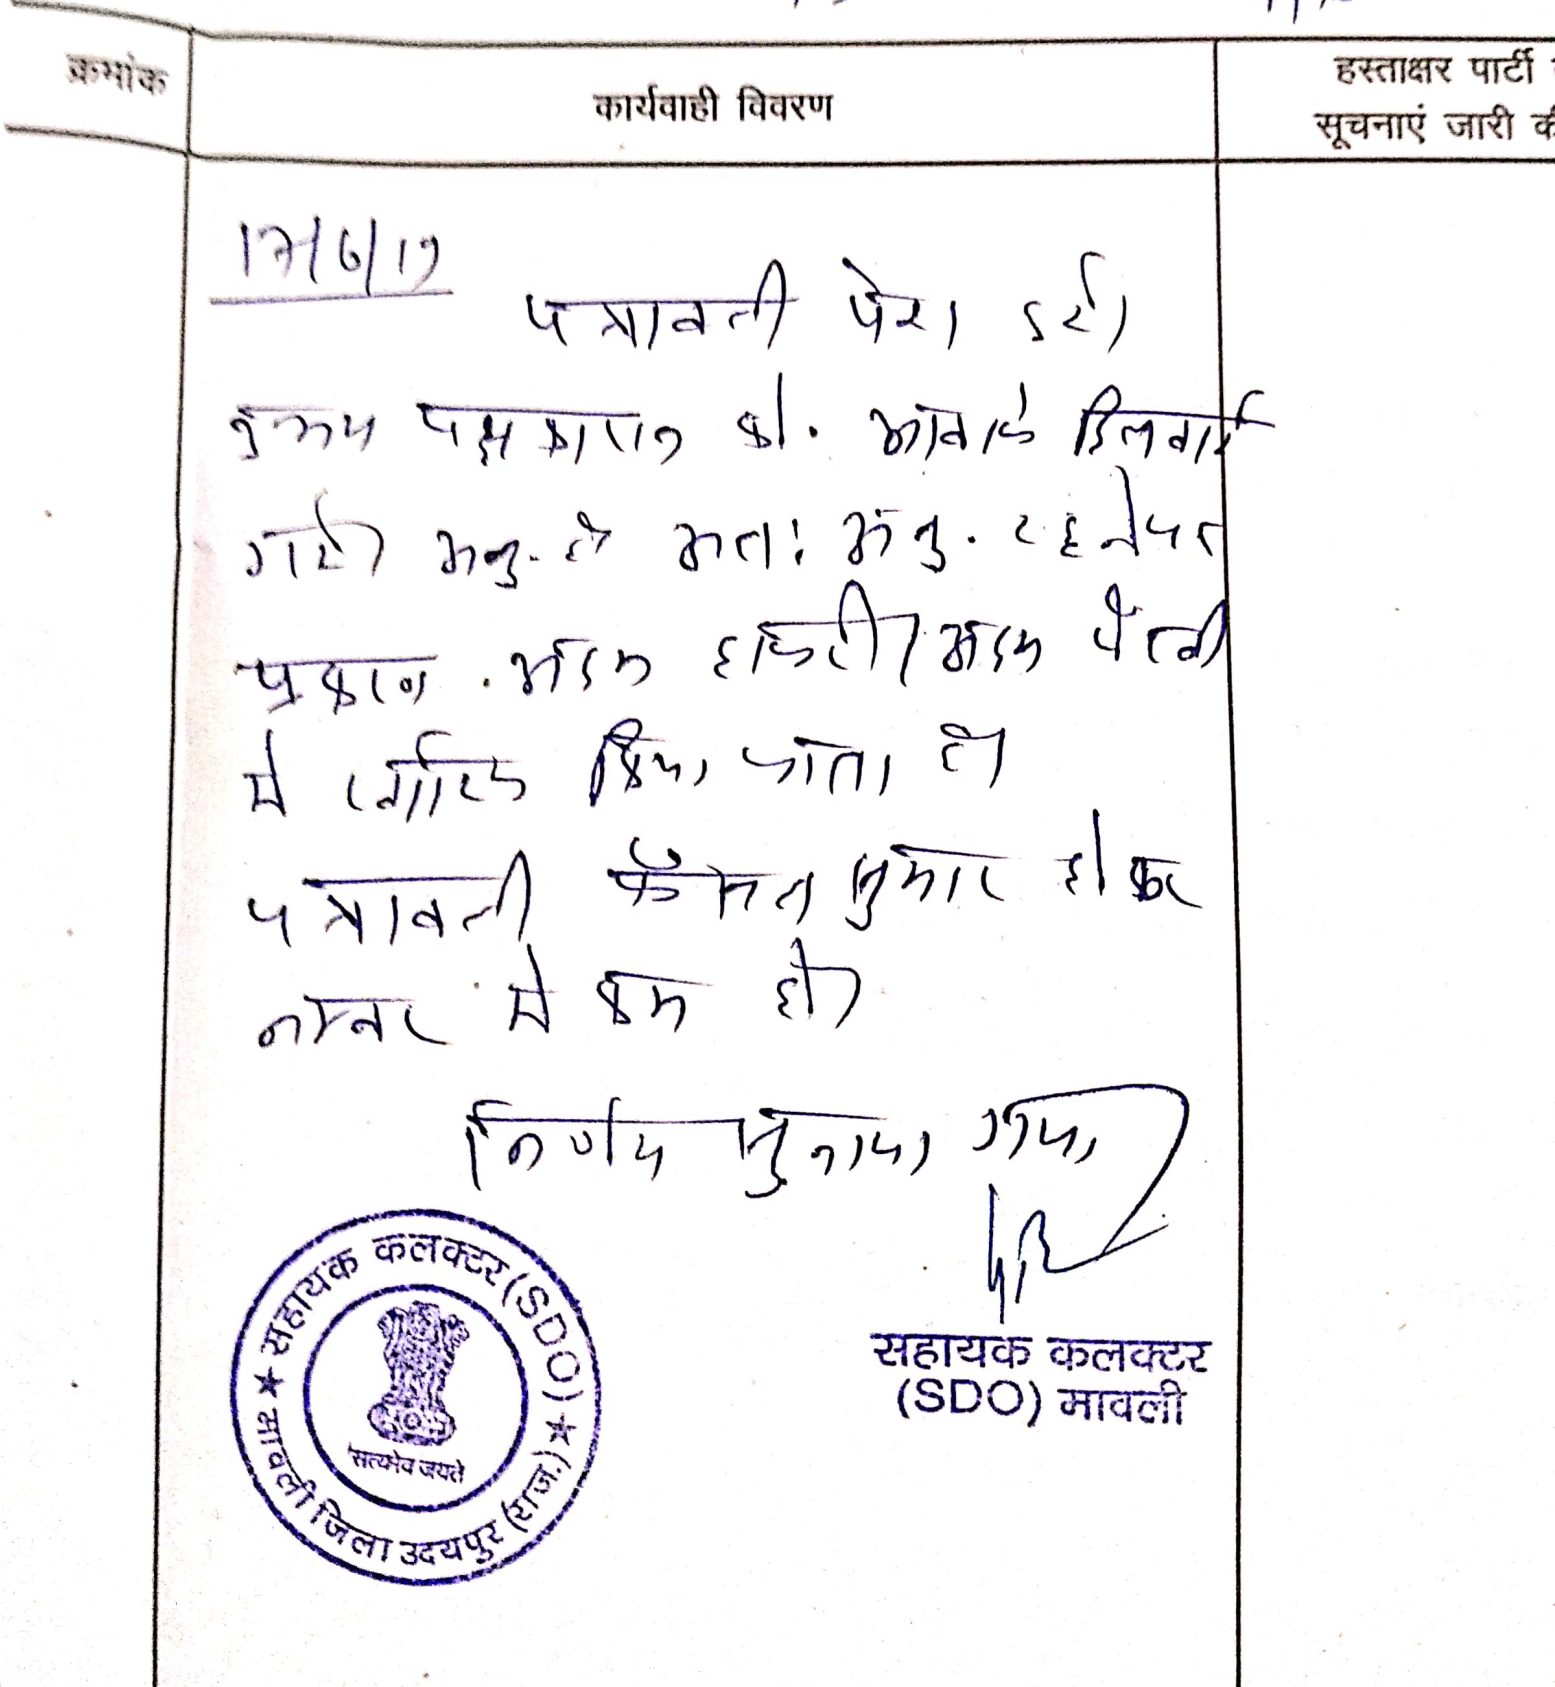 क्रमांक
कार्यवाही विवरण
हस्ताक्षर पार्टी
सूचनाएं जारी की
17/6/19
पत्रावली पेश हुई।
उभय पक्षकारान को. आवाजे दिलवाई
गई। अनु. है अतः अनु. रहने पर
प्रकरण अदम हाजरी/अदम पैरवी
में खारिज किया जाता है।
पत्रावली फैसल शुमार होकर
नम्बर से कम हो।
निर्णय सुनाया गया
सहायक कलक्टर
(SDO) मावली
★ सहायक कलक्टर (SDO) ★
मावली जिला उदयपुर (राज.)
सत्यमेव जयते